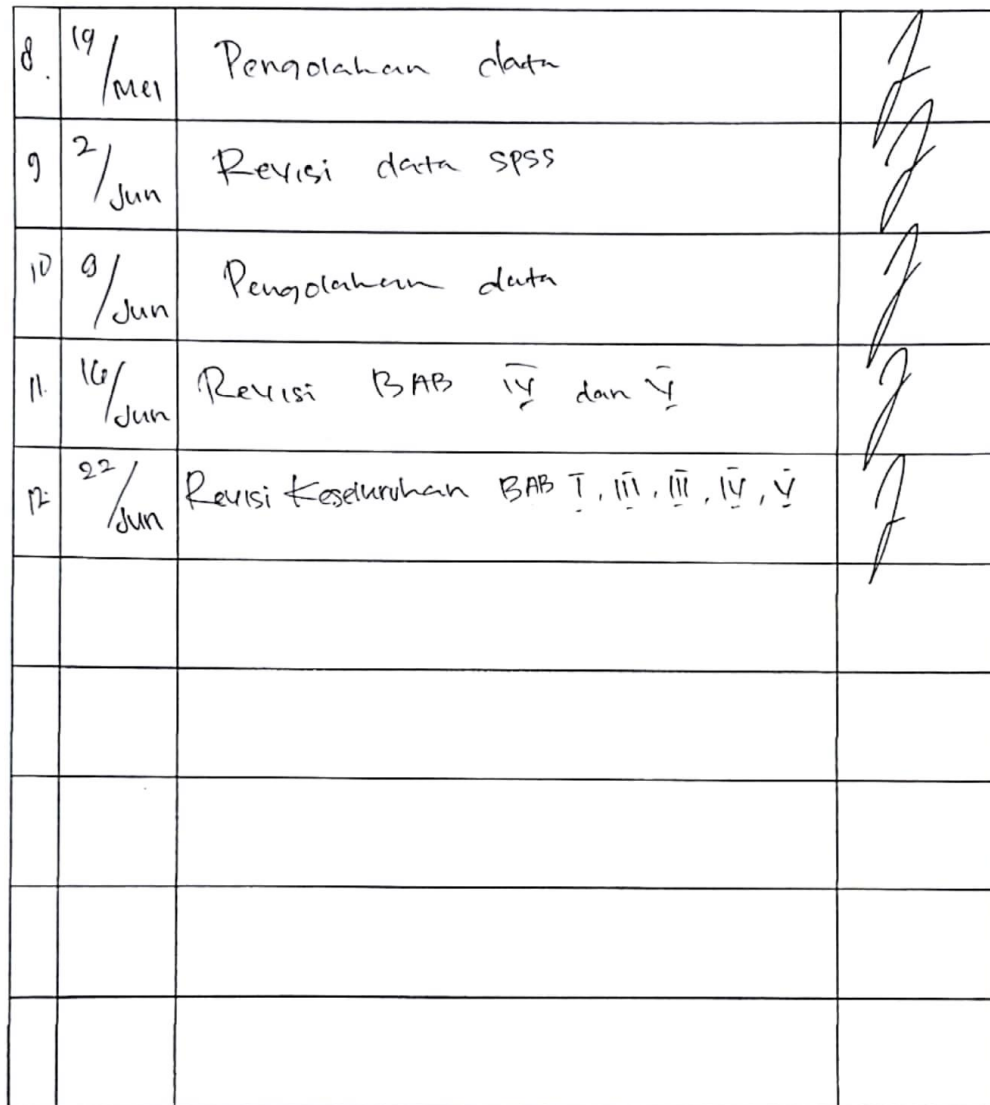 8. 19/Mei Pengolahan data
9 2/Jun Revisi data SPSS
10 9/Jun Pengolahan data
11. 16/Jun Revisi BAB IV dan V
12. 22/Jun Revisi Keseluruhan BAB I, III, III, IV, V